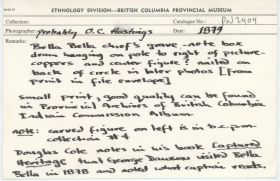 ETHNOLOGY DIVISION—BRITISH COLUMBIA PROVINCIAL MUSEUM
Collection: Catalogue No.: PN 2404
Photographer: probably O.C. Hastings Date: 1879
Remarks:
Bella Bella chief's grave - note box
drum hanging on pole to right of picture -
coppers and carved figure? nailed on
back of circle in later photos [from
print in file envelope]
small print, good quality can be found
in Provincial Archives of British Columbia
Indian Commission Album.
note: carved figure on left is in b.c.p.m.
collection #
Douglas Cole notes in his book Captured
Heritage that George Dawson visited Bella
Bella in 1878 and noted what captain reads.